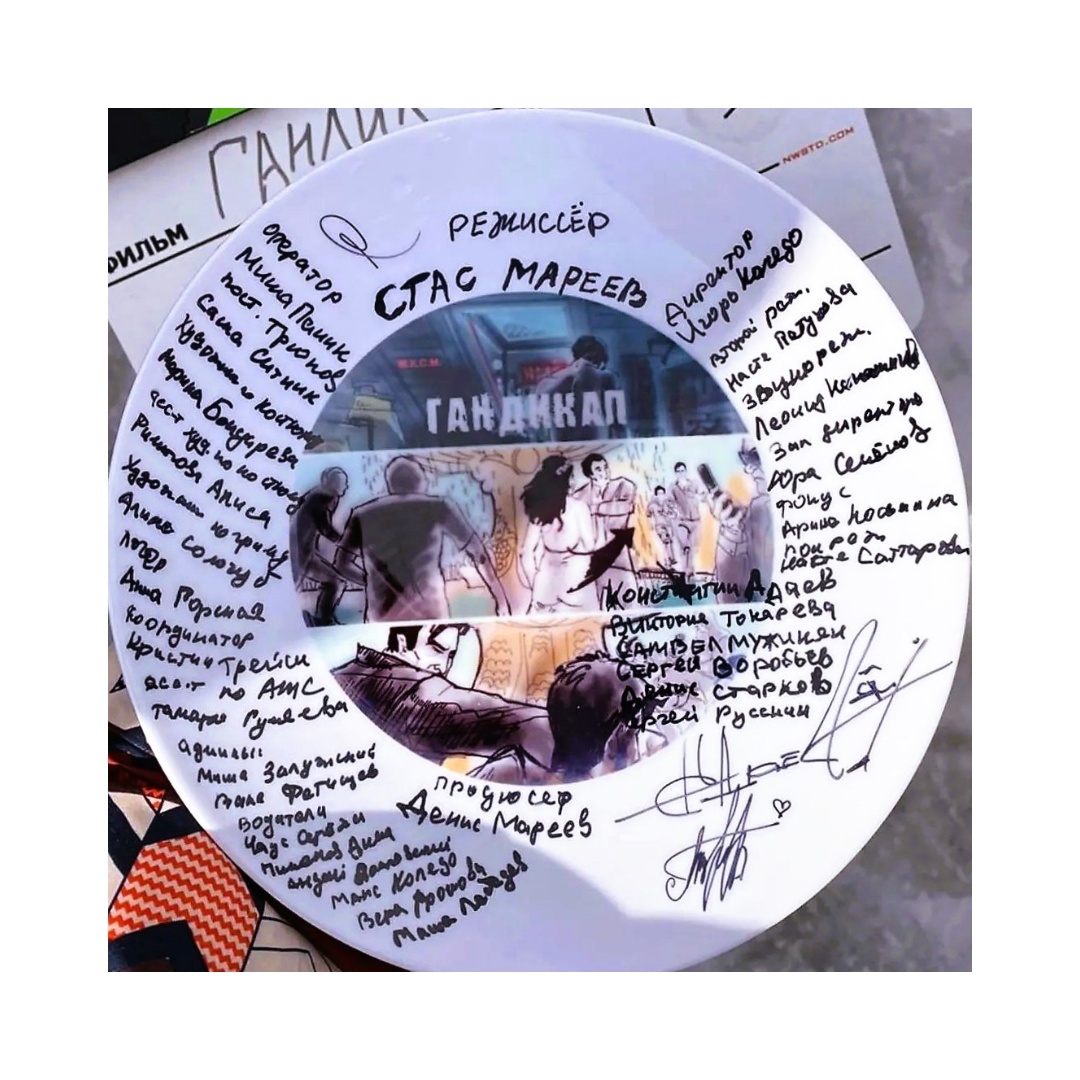 ГАНДИК
NWSTD.COM
ФИЛЬМ
РЕЖИССЁР
СТАС МАРЕЕВ
оператор
Миша Паник
пост. Трюков
Саша Ситник
Художник по костюму
Марина Бондарева
асст худ. по костюму
Римитова Алиса
Художник по гриму
Алина Сологуб
Логер
Анна Горская
Координатор
Кристин Трейси
асст по АТС
Тамара Гуляева
админы:
Миша Залужский
Ваня Фетищев
Водители
Чаус Серёжи
Дима
Андрей
Макс Коледо
Вера Дронова
Маша Лебедев
Директор
Игорь Коледо
второй реж.
Настя Петухова
Звукореж.
Леонид
Зам директора
Юра Семёнов
фокус
Арина
Настя Саттарова
М.К.С.М.
ГАНДИКАП
Константин Адаев
Виктория Токарева
САМВЕЛ МУЖИКЯН
Сергей Воробьёв
Денис Старков
Сергей Русскин
продюсер
Денис Мареев